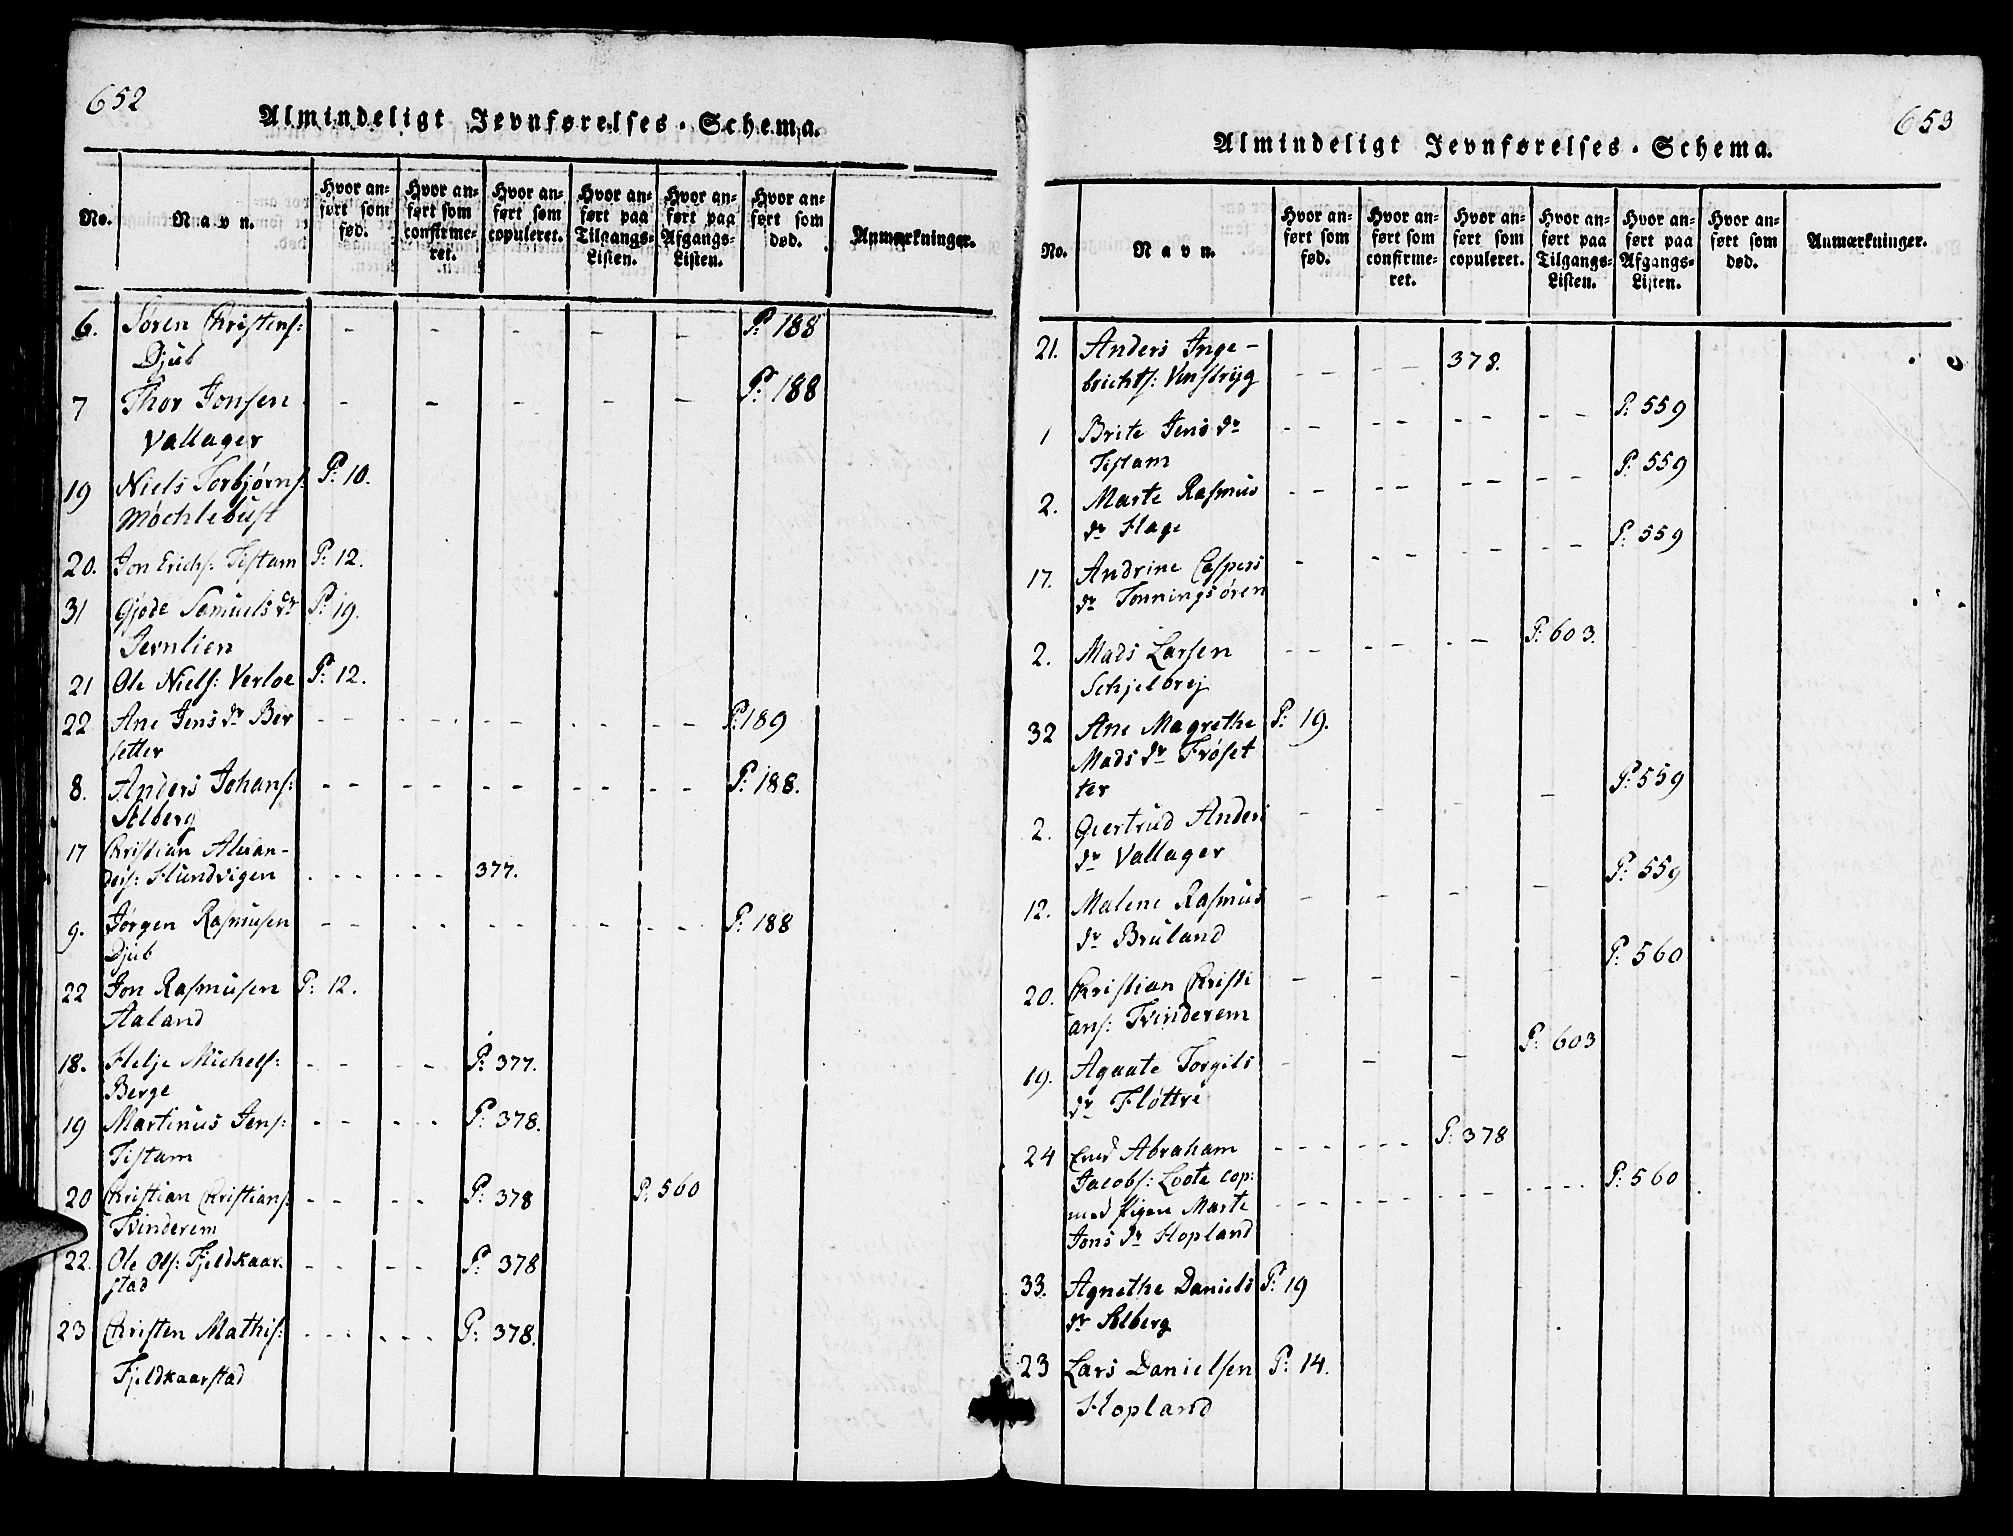 652
Almindeligt Jevnførelses-Schema.
No. Navn. Hvor anført som fød. Hvor anført som confirmeret. Hvor anført som copuleret. Hvor anført paa Tilgangs-Listen. Hvor anført paa Afgangs-Listen. Hvor anført som død. Anmærkninger.
6. Søren Christens: - - - - - P: 188
Djub
7 Thor Jonsen - - - - - P: 188
Vallager
19 Niels Torbjørns: P: 10.
Møchlebust
20. Jon Erichs: Tistam P: 12.
31 Gjøde Samuels dr P: 19.
Jernlien
21 Ole Niels: Verloe P: 12.
22 Ane Jens dr Ber - - - - - P: 189
setter
8. Anders Johans: - - - - - P: 188.
Solberg
17 Christian Alexan-
ders: Hundvigen - - - - - - 377.
9. Jørgen Rasmusen - - - - - P: 188
Djub
22 Jon Rasmusen P: 12.
Aaland
18. Helje Michels: - - - - P: 377.
Berge
19 Martinus Jens: - - - - P: 378.
Tistam
20 Christian Christians: - - - - P: 378 P: 560
Tvinderem
22. Ole Ols: Fjeldkaar- - - - - P: 378
stad
23 Christen Mathis: - - - - - - P: 378.
Fjeldkaarstad
653
Almindeligt Jevnførelses-Schema.
No. Navn. Hvor anført som fød. Hvor anført som confirmeret. Hvor anført som copuleret. Hvor anført paa Tilgangs-Listen. Hvor anført paa Afgangs-Listen. Hvor anført som død. Anmærkninger.
21. Anders Inge-
brichts: Vinstryg - - - - 378.
1 Brite Jens dr - - - - - - - - P: 559
Tistam
2. Marte Rasmus - - - - - - - - P: 559
dr Hage
17. Andrine Caspers - - - - - - - P: 559
dr Tonningsøren
2. Mads Larsen - - - - - - P: 603.
Schjelbrej
32 Ane Magrethe P: 19.
Mads dr Frøset
ter
2. Giertrud Anders - - - - P: 559
dr Vallager
12. Malene Rasmus - - - - P: 559
dr Bruland
20. Christian Christi - - - - P: 560
ans: Tvinderem
19. Agaate Torgils - - - P: 603
dr Fløttre
24 Enkd Abraham - - - - - - - P: 378
Jacobs: Loote cop:
med Pigen Marte - - - - - - - - - - - - P: 560
Jons dr Hopland
33. Agnethe Daniels P: 19
dr Solberg
23 Lars Danielsen P: 14.
Hopland